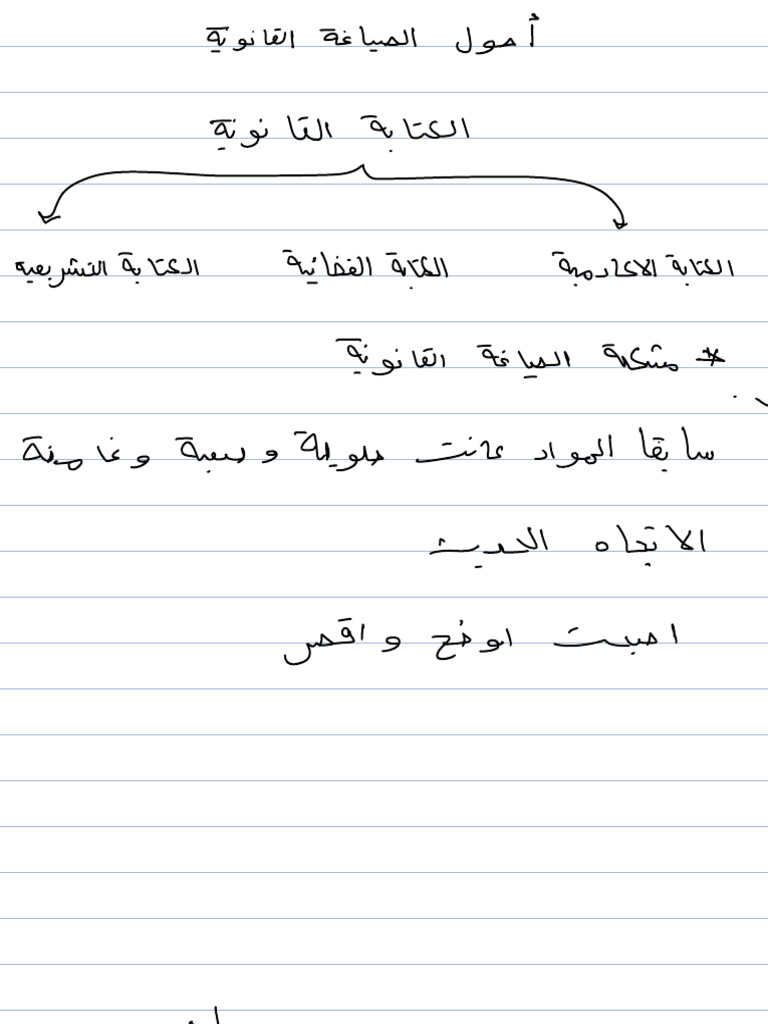 أصول الصياغة القانونية
الكتابة القانونية
الكتابة الاكادمية الكتابة القضائية الكتابة التشريعيه
* مشكلة الصياغة القانونية
سابقا المواد كانت طويلة وصعبة وغامضة
الاتجاه الحديث
اصبحت اوضح واقصر